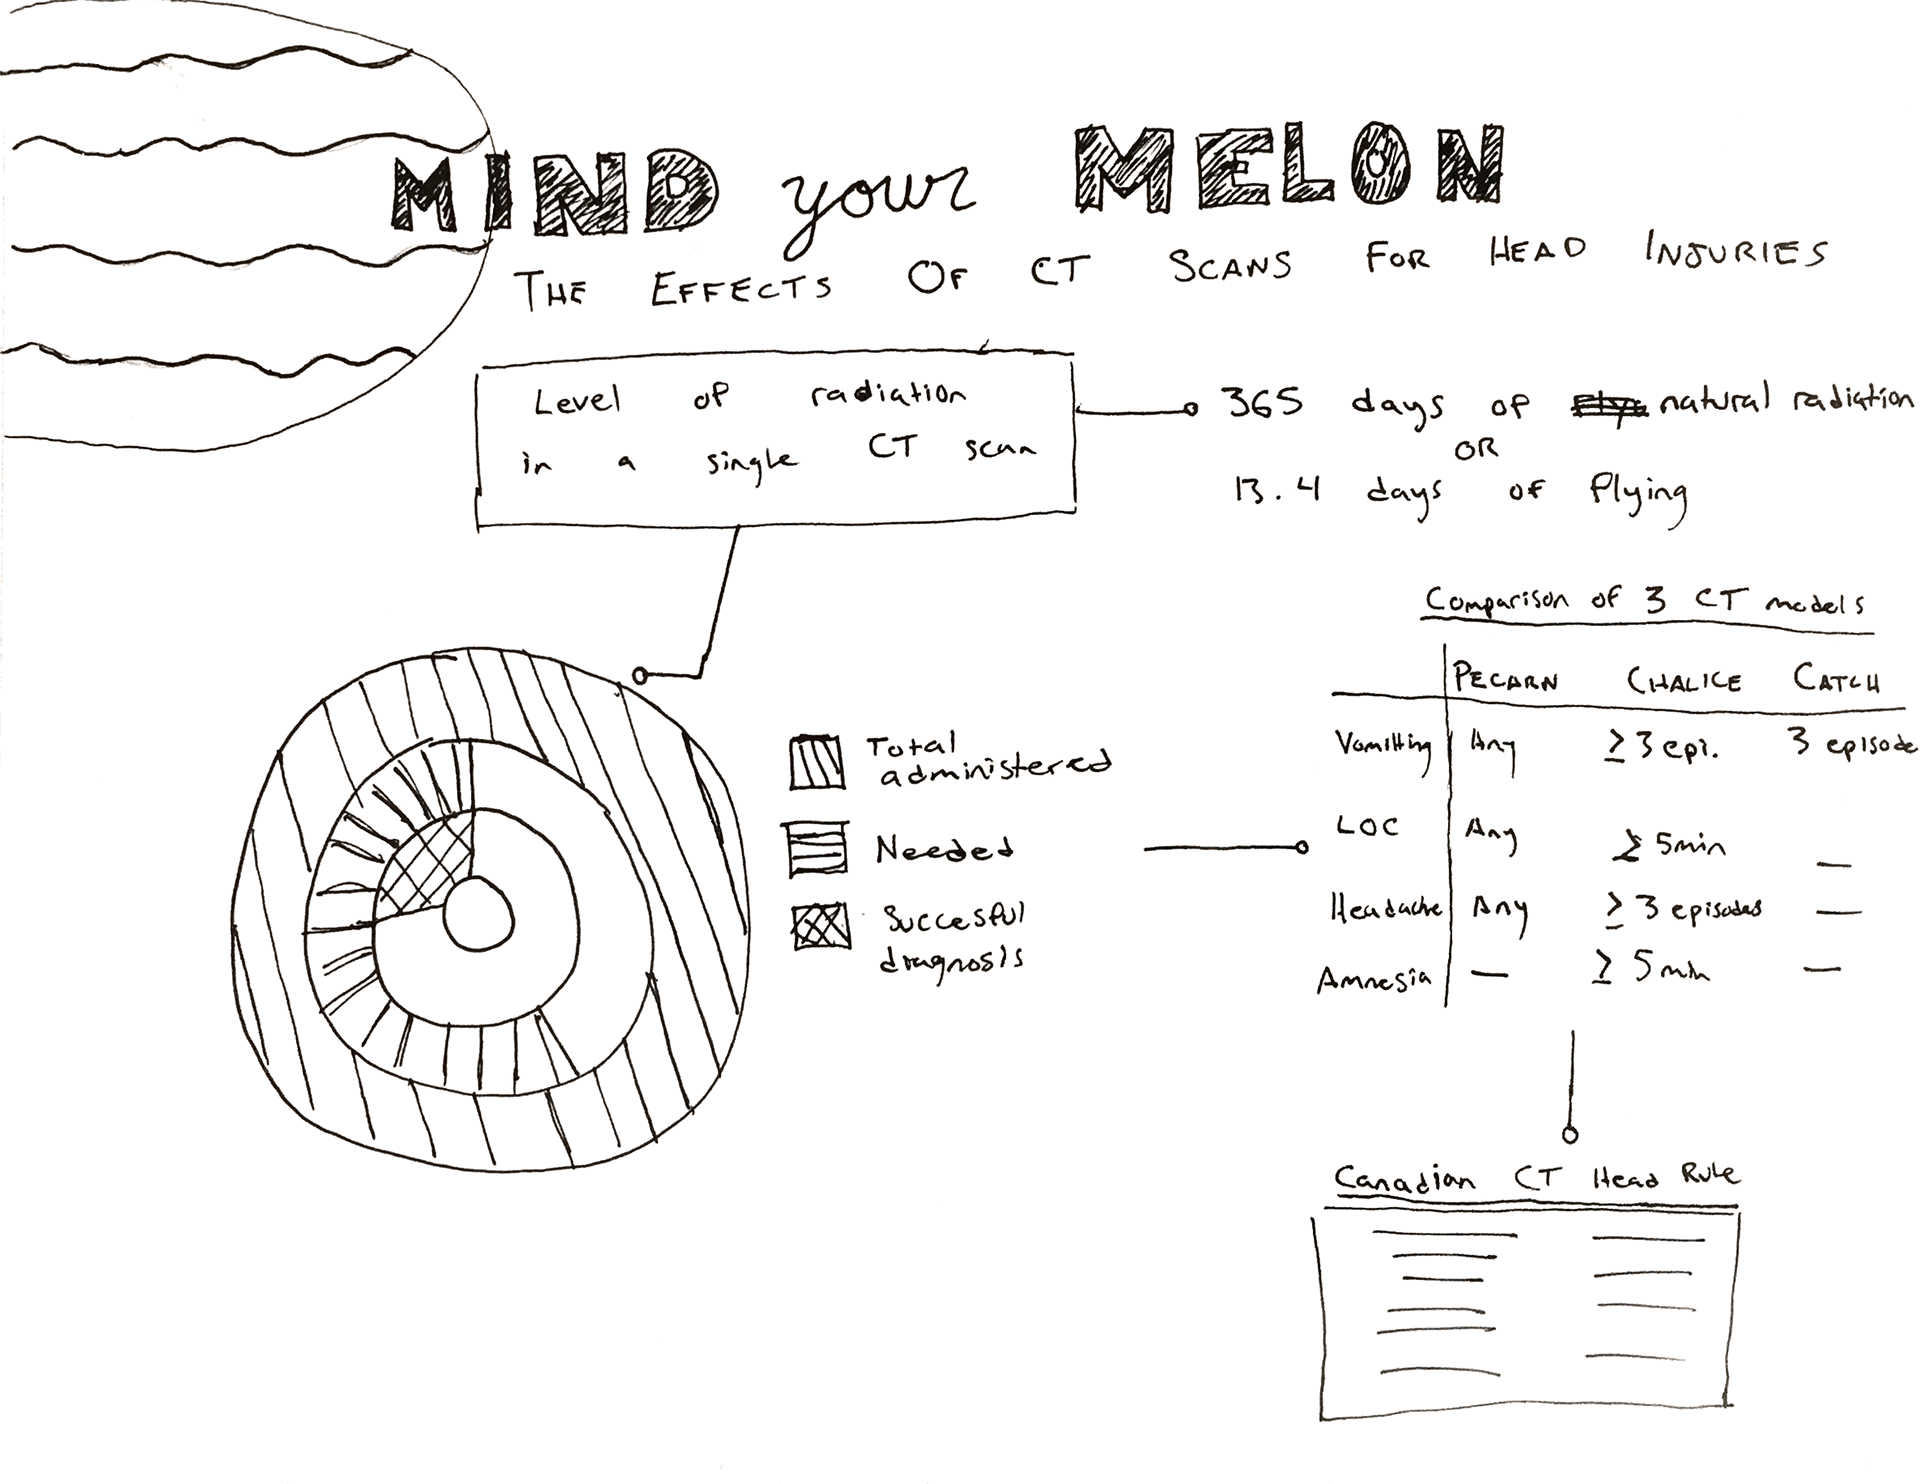 MIND your MELON
THE EFFECTS OF CT SCANS FOR HEAD INJURIES
Level of radiation
in a single CT scan
365 days of natural radiation
OR
13.4 days of flying
Comparison of 3 CT models
PECARN CHALICE CATCH
Vomitting Any ≥ 3 epi. 3 episode
LOC Any ≥ 5min —
Headache Any ≥ 3 episodes —
Amnesia — ≥ 5 min —
Total
administered
Needed
Succesful
diagnosis
Canadian CT Head Rule